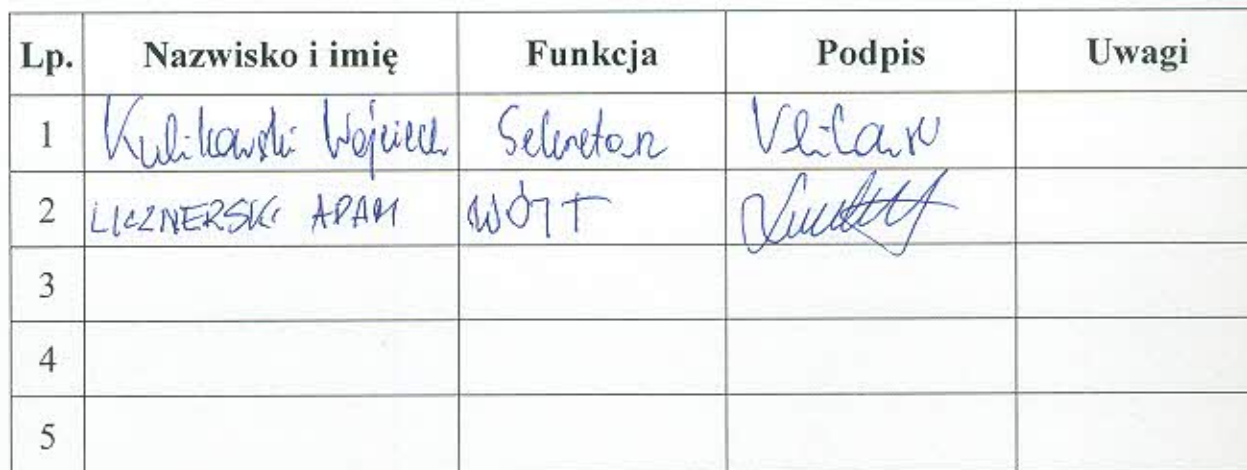 Lp. Nazwisko i imię Funkcja Podpis Uwagi
1 Kulikowski Wojciech Sekretarz
2 LICZNERSKI ADAM WÓJT
3
4
5